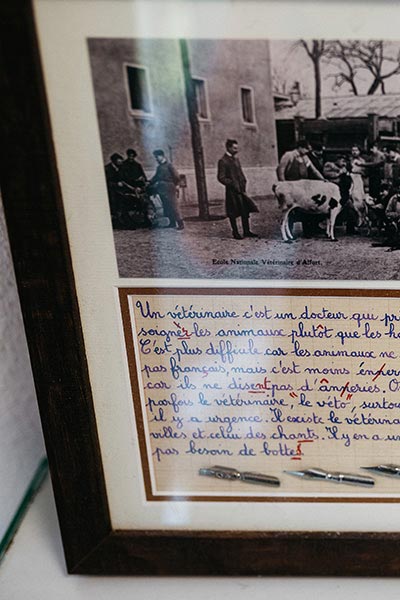 Ecole Nationale Vétérinaire d'Alfort.
Un vétérinaire c'est un docteur qui
soigner les animaux plutôt que les
C'est plus difficile car les animaux ne
pas français, mais c'est moins
car ils ne disent pas d'âneries.
parfois le vétérinaire, "le véto",
il y a urgence. Il existe le
villes et celui des chants. Il y en a
pas besoin de bottes